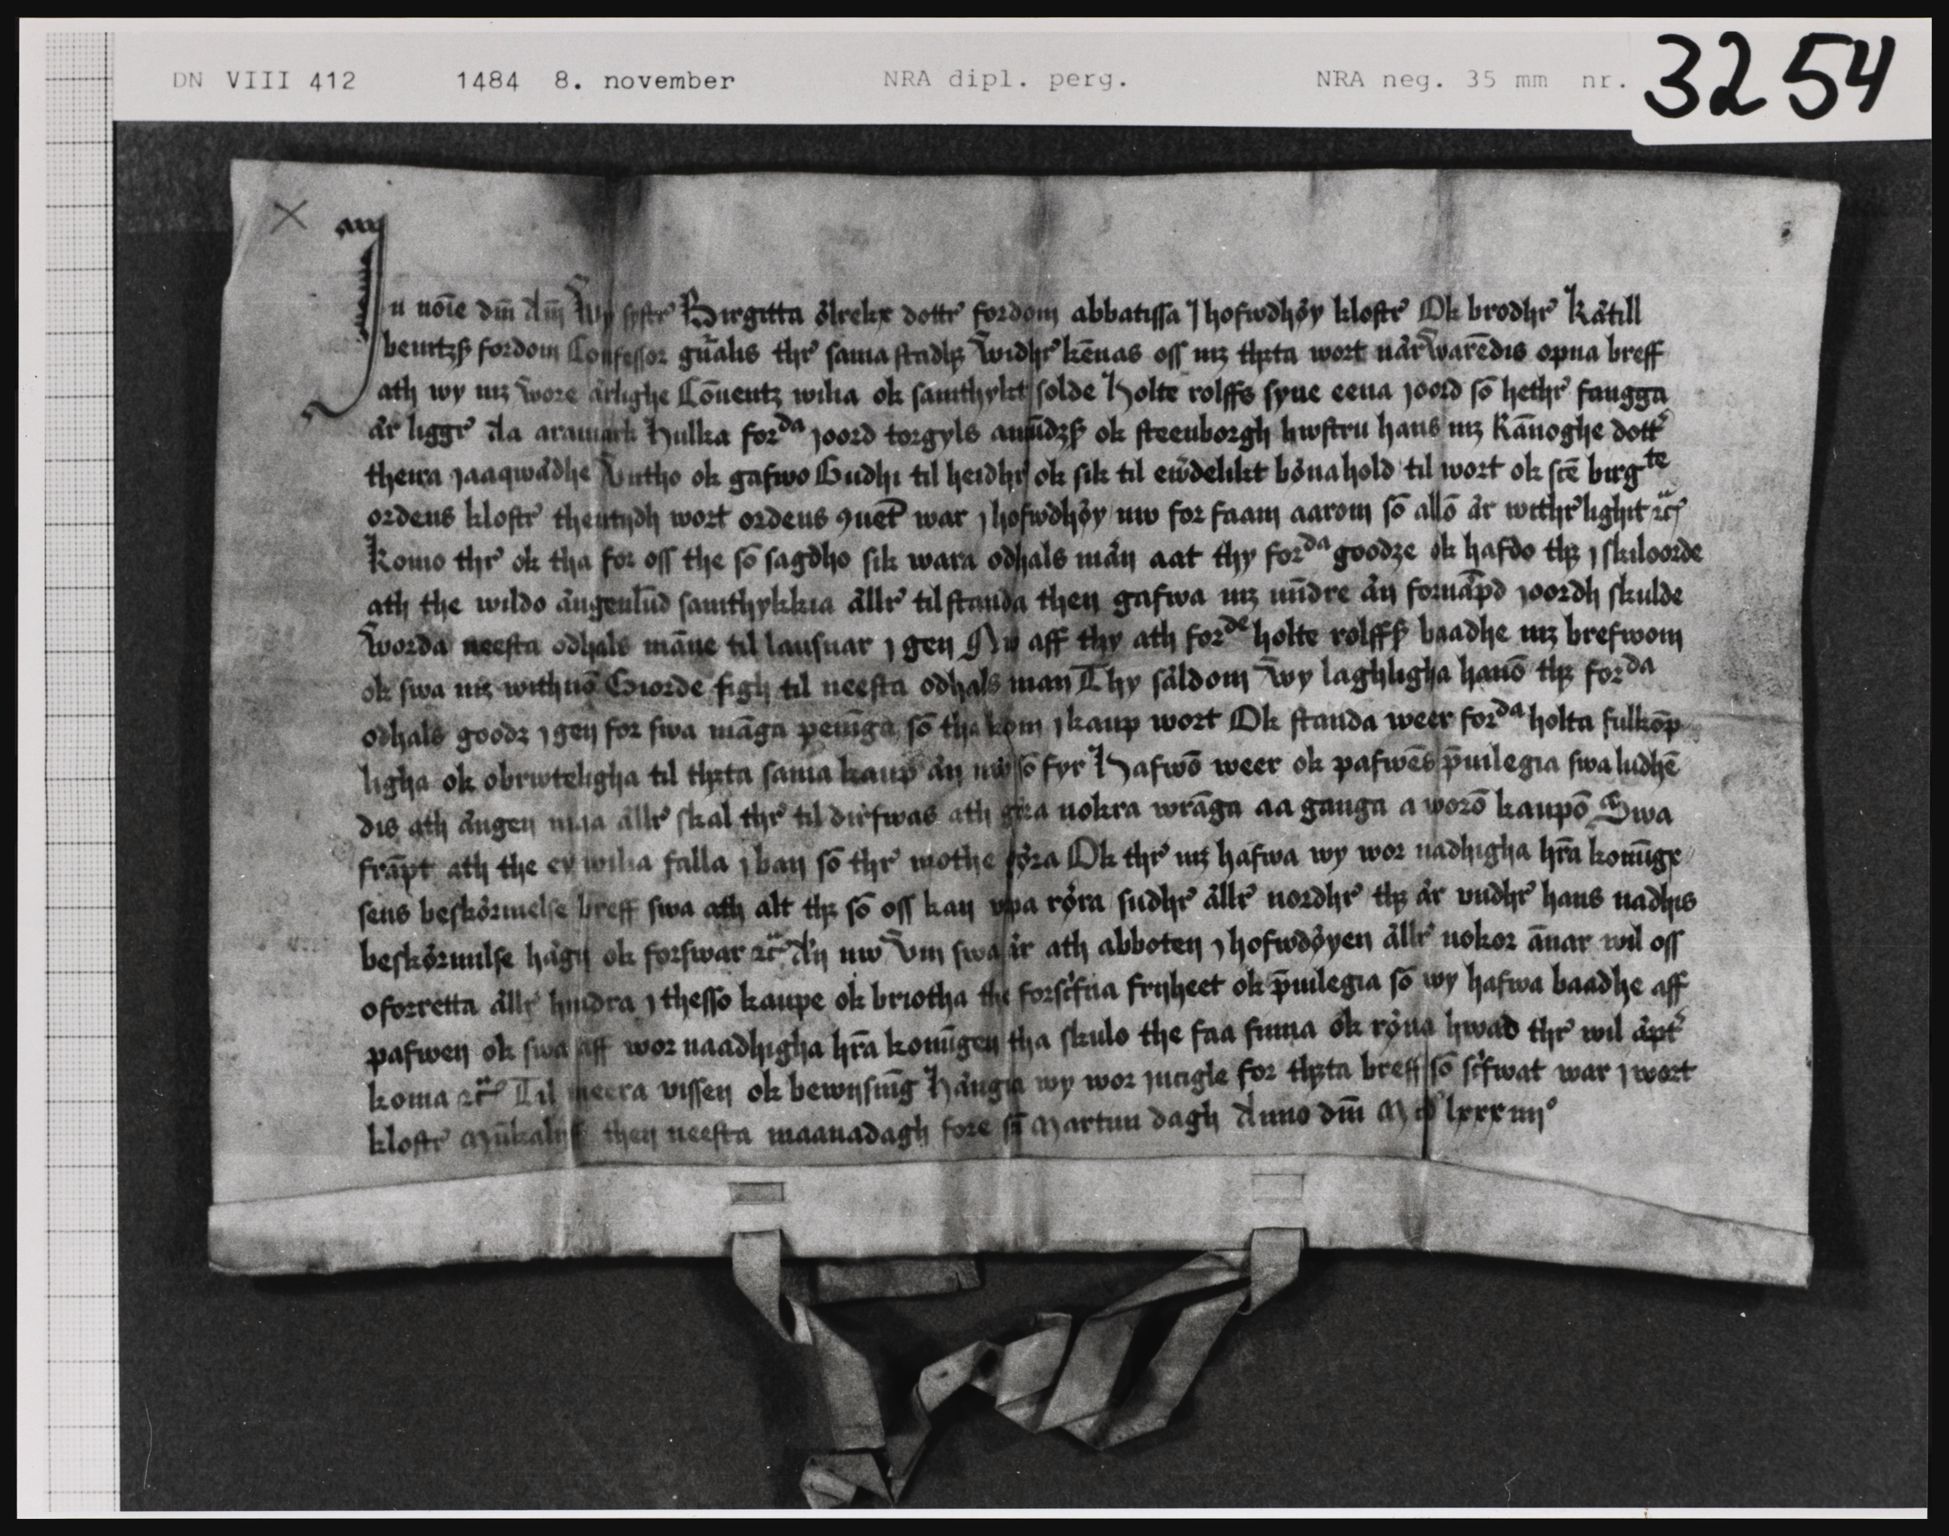 DN VIII 412 1484 8. november NRA dipl. perg. NRA neg. 35 mm nr. 3254
In noīe dn̄i Am̄ Wy systr̕ Birgitta ølrekx dottr̕ fordom abbatissa J hofwdhøy klostr̕ Ok brodhr̕ Kätill
bentzß fordom Confessor gn̄alis thr̕ sama stadhꝫ Widhr̕kēnas oss mꝫ thꝫta wort närwarēdis opna breff
ath wy mꝫ wore ärlighe Cōuentꝫ wilia ok samthykt solde Holte rolffs syne eena joord sō hethr̕ faugga
är liggr̕ A aramark Hulka forda joord torgyls amūdzß ok steenborgh hwstru hans mꝫ Kānoghe dottr̕
theira jaaqwädhe Vntho ok gafwo Gudhi til heidhr̕ ok sik til ewdelikt bönahold til wort ok scē birgte
ordens klostr̕ thentijdh wort ordens ꝯuēt war j hofwdhøy nw for faam aarom sō allō är withr̕lighit ꝛc̄
Komo thr̕ ok tha for oss the sō sagdho sik wara odhals män aat thy forda goodze ok hafdo thꝫ j skiloorde
ath the wildo ängenlūd samthykkia ällr̕ tilstanda then gafwa mꝫ mīdre än fornāpd joordh skulde
Worda neesta odhals mäne til lausnar j gen Nw aff thy ath forde holte rolffß baadhe mꝫ brefwom
ok swa mꝫ withnō Giorde sigh til neesta odhals man Thy säldom wy laghligha hanō thꝫ forda
odhals goodz j gen for swa mānga penīga sō tha kom j kaup wort Ok standa weer forda holta fulkōp
ligha ok obrwteligha til thꝫta sama kaup än nw sō fyr Hafwō weer ok pafwēs p̄uilegia swa ludhē
dis ath ängen ällr̕ skal thr̕ til dirfwas ath gøra nokra wrānga aa ganga a worō kaupō Swa
frāpt ath the ey wilia falla j ban sō thr̕ mothe gøra Ok thr̕ mꝫ hafwa wy wor nadhigha hr̄a konūgx
sens beskørmelse breff swa ath alt thꝫ sō oss kan vpa røra sudhr̕ ällr̕ nordhr̕ thꝫ är vndhr̕ hans nadhis
beskørmilse hägn ok forswar ꝛc̄ Än nw Vm swa är ath abboten j hofwdøyen ällr̕ nokor ānar wil oss
oforretta ällr̕ hindra j thesso kaupe ok briotha the forscr̕fna frijheet ok p̄uilegia sō wy hafwa baadhe aff
pafwen ok swa aff wor naadhigha hr̄a konūgen tha skulo the faa finna ok røna hwad thr̕ wil äptr̕
koma ꝛc̄ Til meera vissen ok bewijsnīg Hängia wy wor jncigle for thꝫta breff sō scr̕fwat war j wort
klostr̕ Mūkaliff then neesta maanadagh fore sc̄i Martini dagh Anno dn̄i Mcdlxxxiiijº